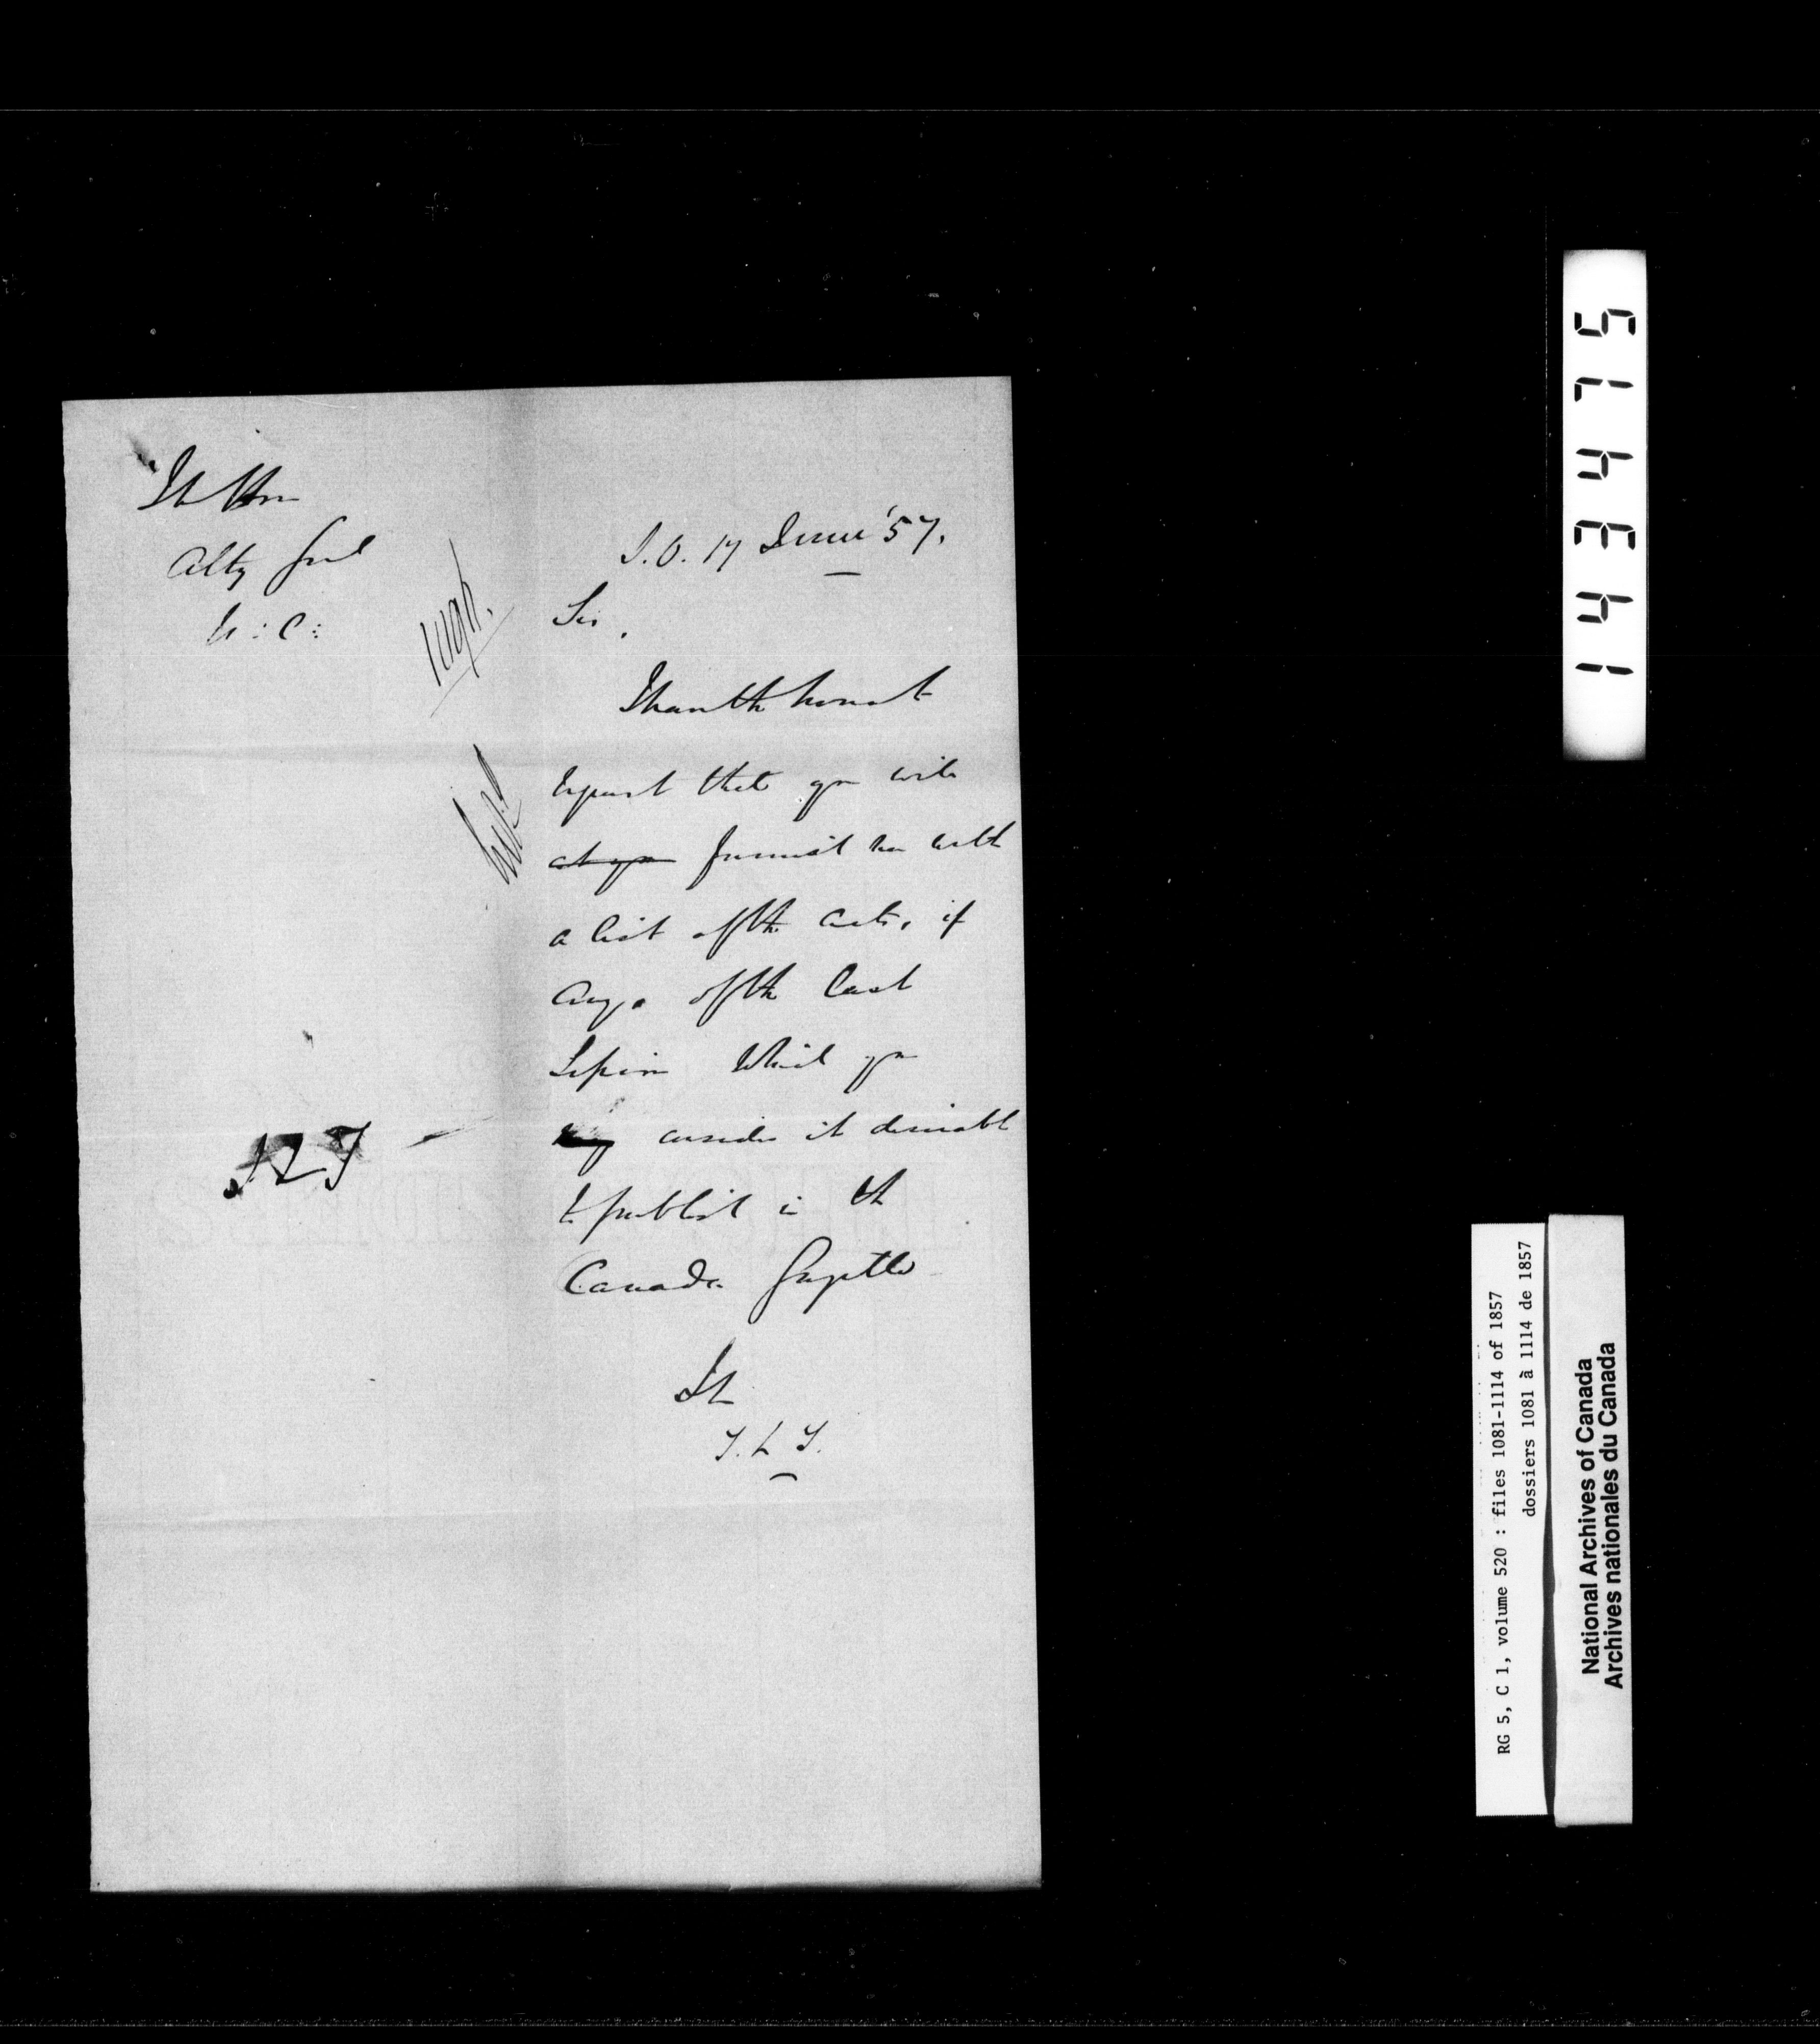 The Hon
Atty Genl
U : C :
S. O. 17 June '57.
Sir,
I have the honor to
request that you will
at you furnish me with
a list of the Acts, if
any, of the last
Session which you
may consider it desirable
to publish in the
Canada Gazette
I h
T. L. T.
127
RG 5, C 1, volume 520 : files 1081-1114 of 1857
dossiers 1081 à 1114 de 1857
National Archives of Canada
Archives nationales du Canada